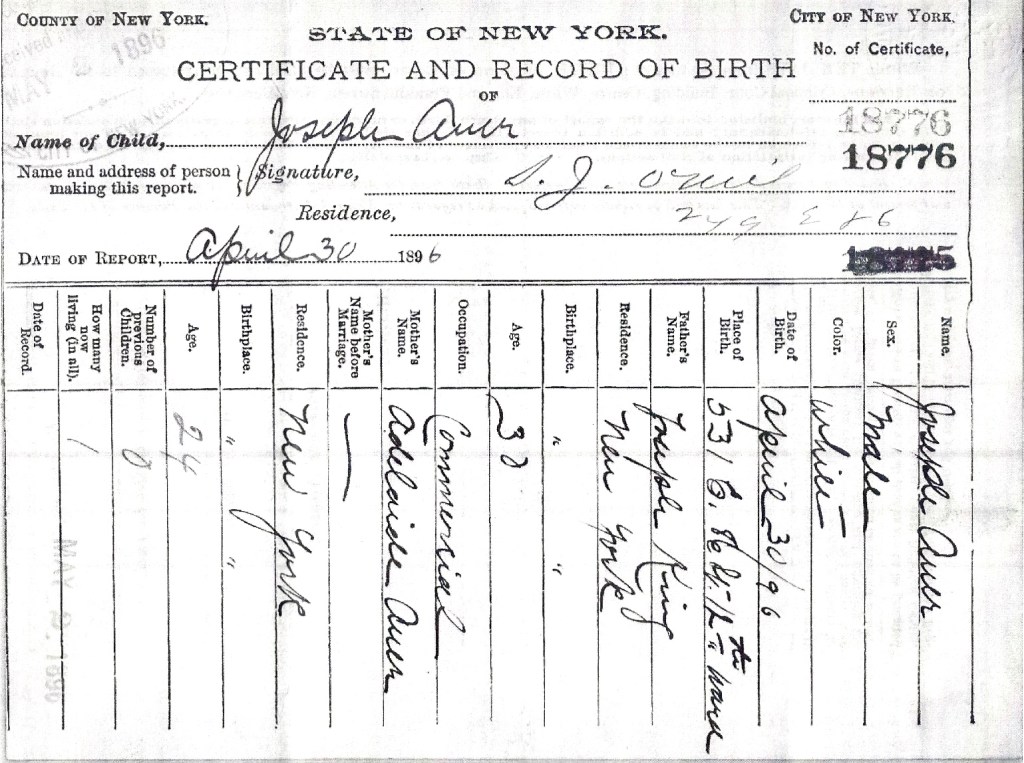 COUNTY OF NEW YORK.
CITY OF NEW YORK.
STATE OF NEW YORK.
No. of Certificate,
CERTIFICATE AND RECORD OF BIRTH
OF
Name of Child, Joseph Auer
18776
18776
Name and address of person making this report. } Signature,
Residence,
DATE OF REPORT, April 30 1896
Name. Joseph Auer
Sex. Male
Color. White
Date of Birth. April 30/96
Place of Birth. 531 E. 86 St. 12th Ward
Father's Name. Joseph King
Residence. New York
Birthplace. " "
Age. 30
Occupation. Commercial
Mother's Name. Adelaide Auer
Mother's Name before Marriage. —
Residence. New York
Birthplace. " "
Age. 24
Number of previous Children. 0
How many now living (in all). 1
Date of Record.
MAY 1896
MAY 2 1896